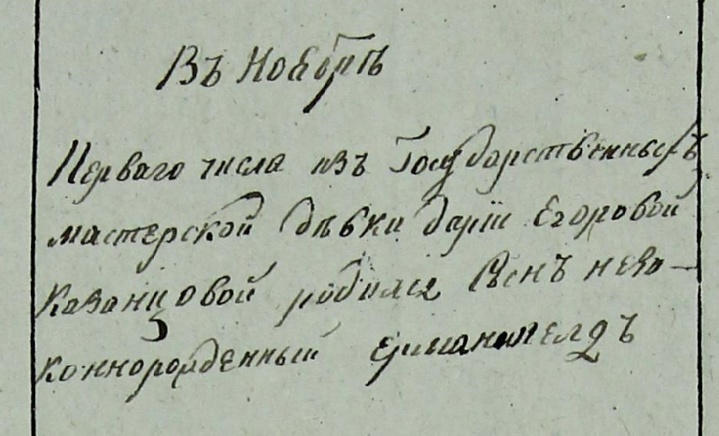 Въ Ноябрѣ
Перваго числа изъ Государственныхъ
мастерской дѣвки Дарїи Егоровой
Казанцовой родился сынъ неза-
коннорожденный